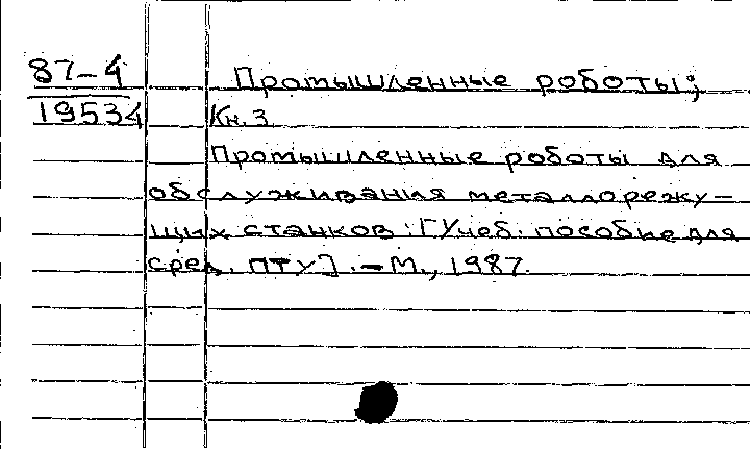 87-4
19534
Промышленные роботы;
Кн. 3
Промышленные роботы для
обслуживания металлорежу-
щих станков: [Учеб. пособие для
сред. ПТУ]. - М., 1987.